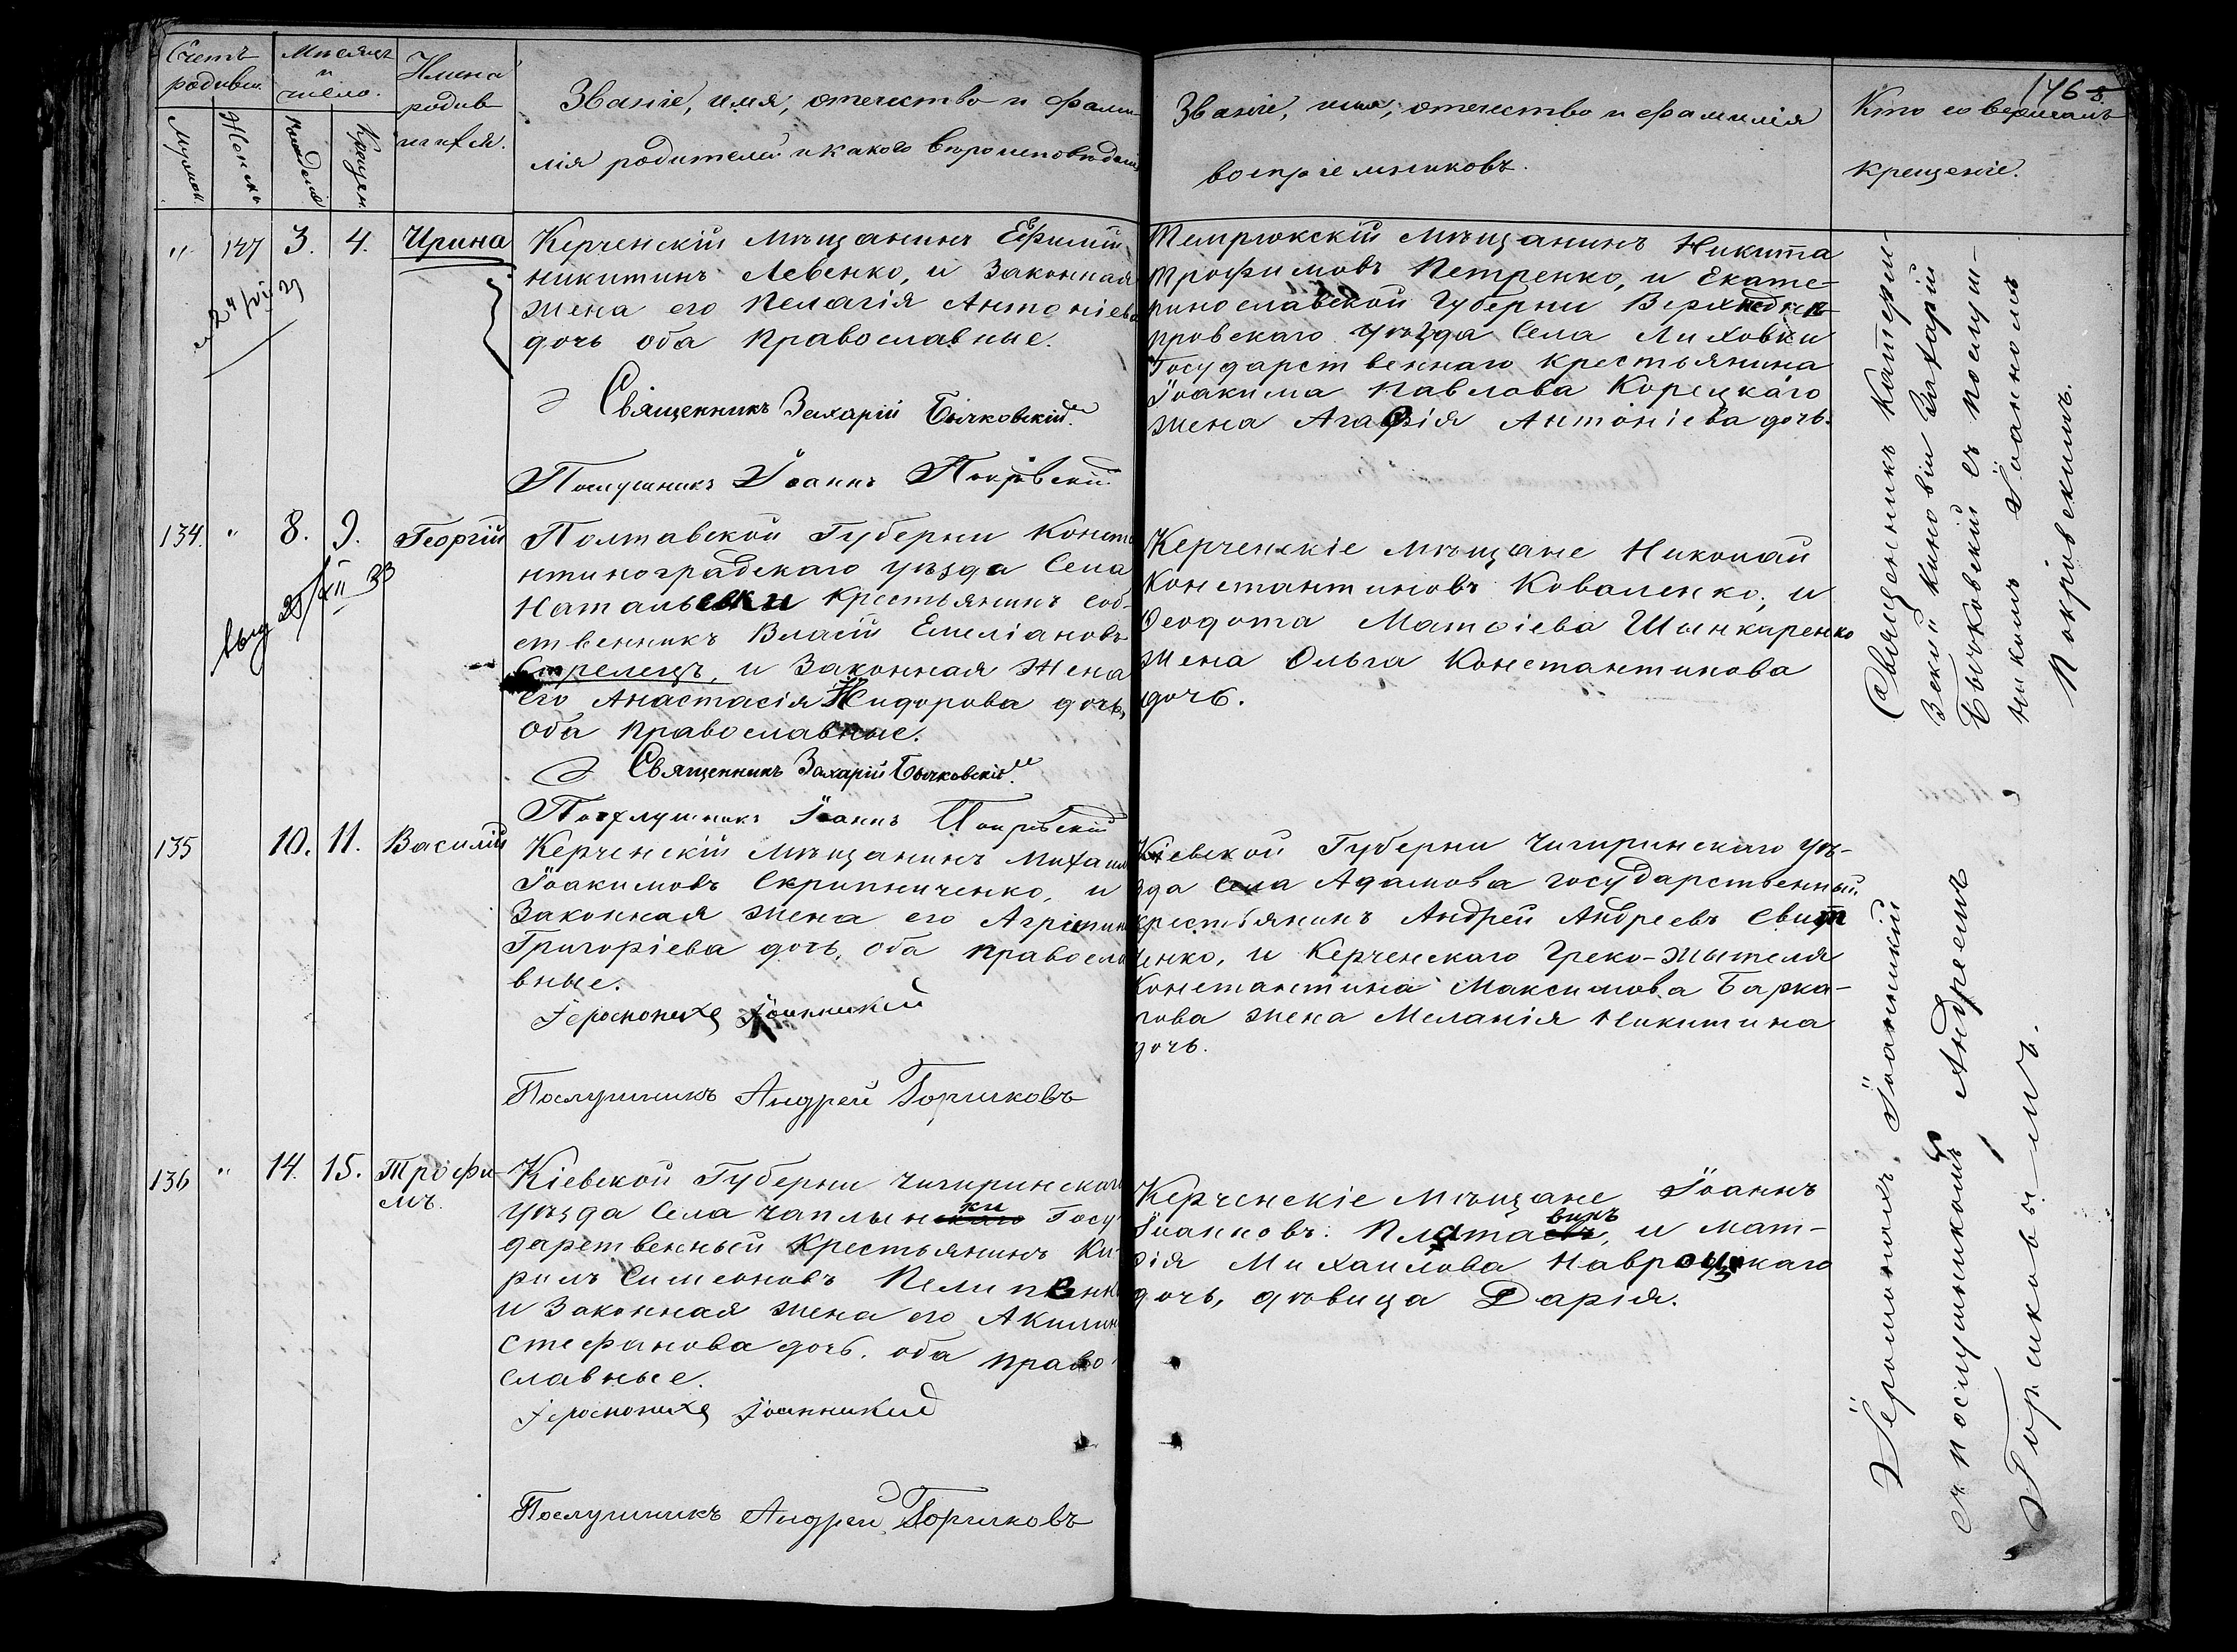 Счетъ родивш.
Мужеск.
Женскъ
Мѣсяцъ и число.
Рожденія
Крещен.
Имена родив шихся.
Званіе, имя, отечество и фами
лія родителей и какого вѣроисповѣданія
Званіе, имя, отечество и фамилія
воспріемниковъ.
Кто совершалъ
крещеніе.
146
" 127 3. 4. Ирина
Керченскій мѣщанинъ Ефимій
Никитинъ Левенко, и законная
жена его Пелагія Антоніева
дочь оба православные.
Священникъ Захарій Бычковскій.
Послушникъ Іоаннъ Покровскій
Темрюкскій мѣщанинъ Никита
Трофимовъ Петренко, и Екате-
ринославской Губерни Верхнеднѣ
провскаго уѣзда Села Лиховки
Государственнаго крестьянина
Іоакима Павлова Корецкаго
жена Агафія Антоніева дочь.
Священникъ Катерли-
зскій Киновіи Захарій
Бычковскій съ послуш-
никомъ Іоанномъ
Покровскимъ.
134. " 8. 9. Георгій
выд 25/XII 33
Полтавской Губерни Конст
нтиноградскаго уѣзда Села
Натальевки крестьянинъ соб-
ственникъ Власій Емеліановъ
Стрелецъ, и законная жена
его Анастасія Сидорова дочь,
оба православные.
Священникъ Захарій Бычковскій.
Послушникъ Іоаннъ Покровскій
Керченскіе мѣщане Николай
Константиновъ Коваленко, и
Феодота Матфіева Шынкаренко
жена Ольга Константинова
дочь.
135 10. 11. Василій
Керченскій мѣщанинъ Михаил
Іоакимовъ Скрипниченко, и
законная жена его Агріпин
Григоріева дочь, оба правосла
вные.
Іеромонахъ Іоанникій
Послушникъ Андрей Горшковъ
Кіевской Губерни Чигиринскаго уѣ-
зда Села Адамова государственный
крестьянинъ Андрей Андреевъ Свит
ченко, и Керченскаго Греко-жытеля
Константина Максимова Барка-
лова жена Меланія Никитина
дочь.
Іеромонахъ Іоанникій
съ послушникомъ Андреемъ
Горшковы-мъ.
136 " 14. 15. Трофи-
мъ.
Кіевской Губерни Чигиринскаго
уѣзда Села Чаплынки Госу
дарственный крестьянинъ Ки-
рилъ Симеоновъ Пелипенк
и законная жена его Акилин
Стефанова дочь. оба право-
славные.
Іеромонахъ Іоанникій
Послушникъ Андрей Горшковъ
Керченскіе мѣщане Іоаннъ
Іоанновъ Плотавикъ, и Мат-
фія Михаилова Навроцкаго
дочь, дѣвица Дарія.